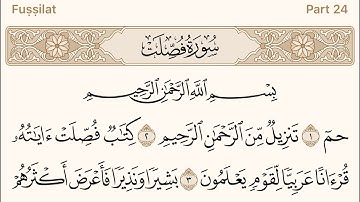 Fuṣṣilat Part 24
سُورَةُ فُصِّلَتْ
بِسْمِ اللَّهِ الرَّحْمَٰنِ الرَّحِيمِ
حمٓ ١ تَنزِيلٌ مِّنَ الرَّحْمَٰنِ الرَّحِيمِ ٢ كِتَابٌ فُصِّلَتْ ءَايَاتُهُ
قُرْءَانًا عَرَبِيًّا لِّقَوْمٍ يَعْلَمُونَ ٣ بَشِيرًا وَنَذِيرًا فَأَعْرَضَ أَكْثَرُهُمْ